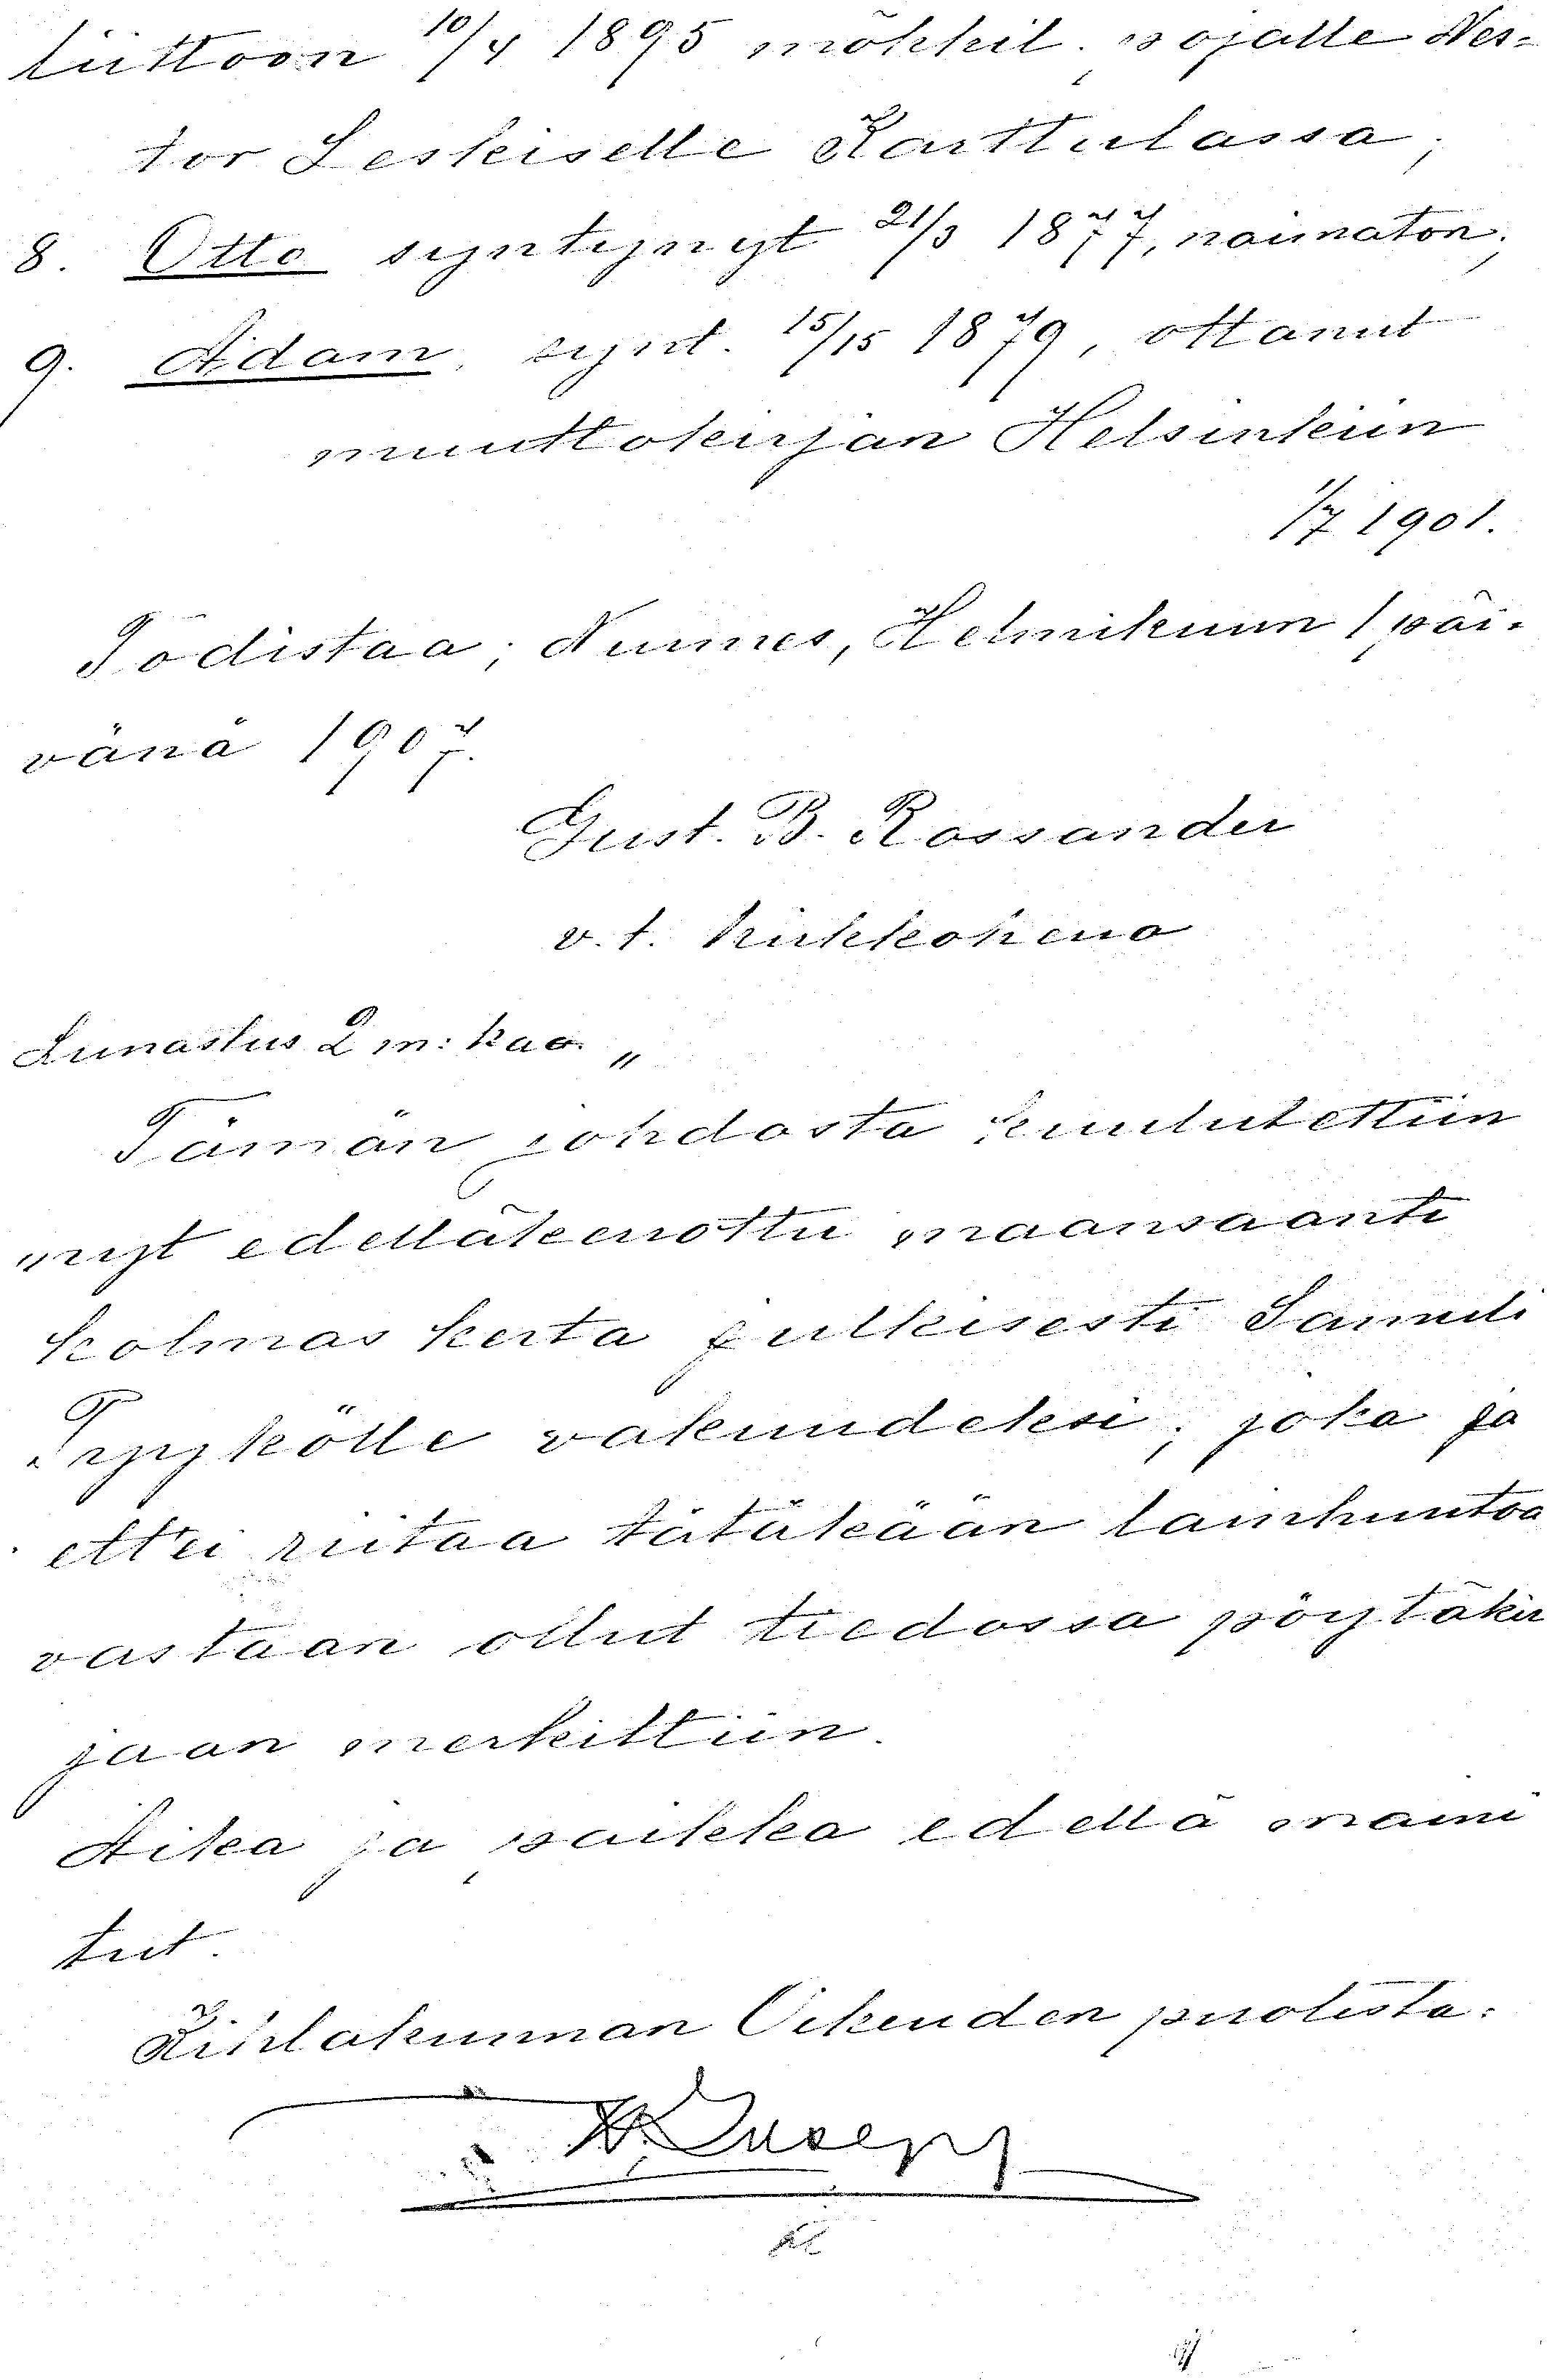 liittoon 10/4 1895 mökkil. pojalle Nes-
tor Leskiselle Karttulassa;
8. Otto syntynyt 21/3 1877, naimaton;
9. Adam, synt. 15/15 1879, ottanut
muuttokirjan Helsinkiin
1/7 1901.
Todistaa; Nurmes, Helmikuun 1 päi-
vänä 1907.
Gust. B. Rossander
v.t. kirkkoherra
Lunastus 2 m: kaa. „
Tämän johdosta kuulutettiin
nyt edelläkerrottu maansaanti
kolmas kerta julkisesti Samuli
Pyykölle vakuudeksi; joka ja
ettei riitaa tätäkään lainhuutoa
vastaan ollut tiedossa pöytäkir
jaan merkittiin.
Aika ja paikka edellä maini
tut.
Kihlakunnan Oikeuden puolesta: